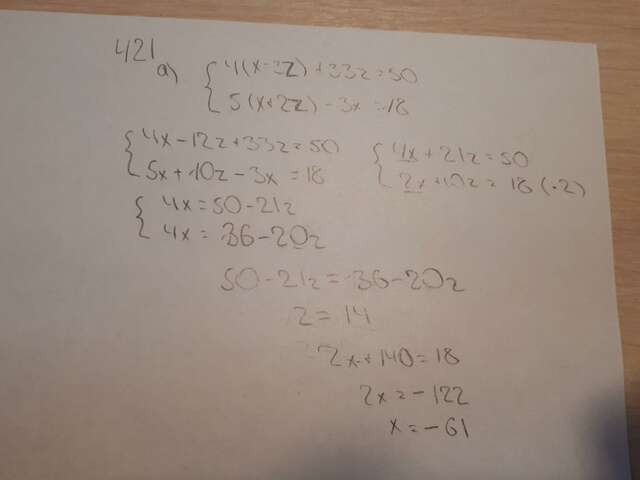 421
а) { 4(x-3z)+33z=50
5(x+2z)-3x=18
{ 4x-12z+33z=50
5x+10z-3x=18
{ 4x+21z=50
2x+10z=18 (·2)
{ 4x=50-21z
4x=36-20z
50-21z=36-20z
z=14
2x+140=18
2x=-122
x=-61